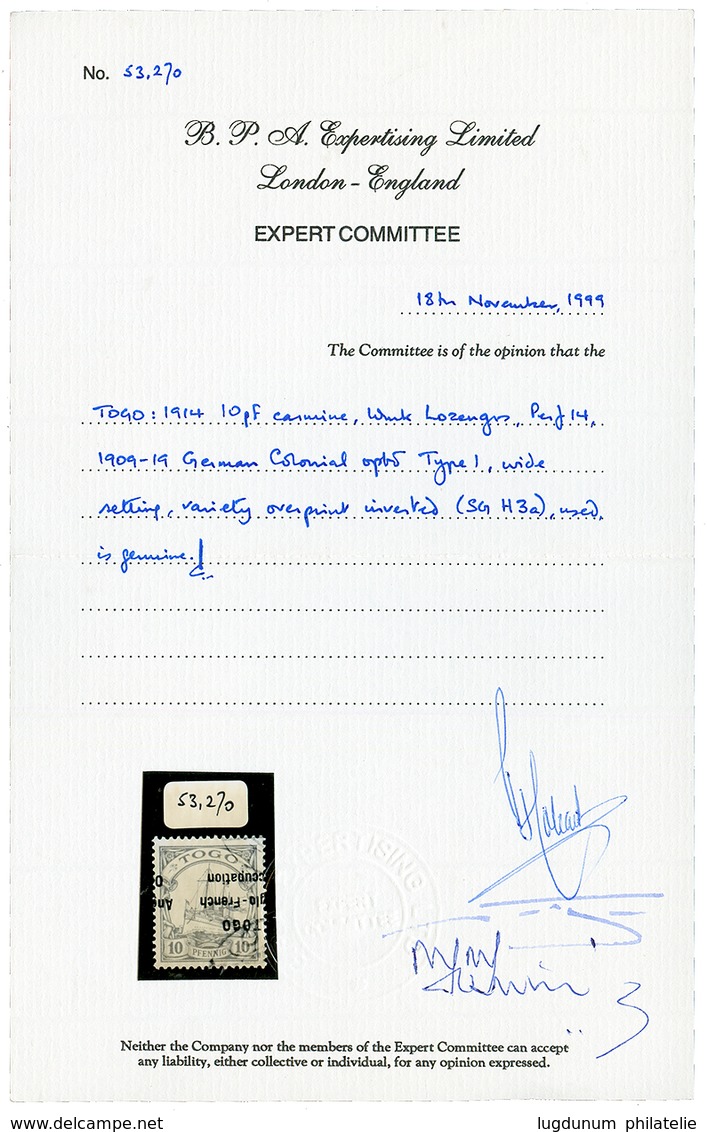 No. 53,270
B. P. A. Expertising Limited
London - England
EXPERT COMMITTEE
18th November, 1999
The Committee is of the opinion that the
TOGO: 1914 10pf carmine, Wmk Lozenges, Perf 14,
1909-19 German Colonial optd Type 1, wide
setting, variety overprint inverted (SG H3a), used,
is genuine.
53,270
TOGO
ccupation
O
glo-French
An
TOGO
10 PFENNIG 10
Neither the Company nor the members of the Expert Committee can accept
any liability, either collective or individual, for any opinion expressed.
www.delcampe.net
lugdunum philatelie